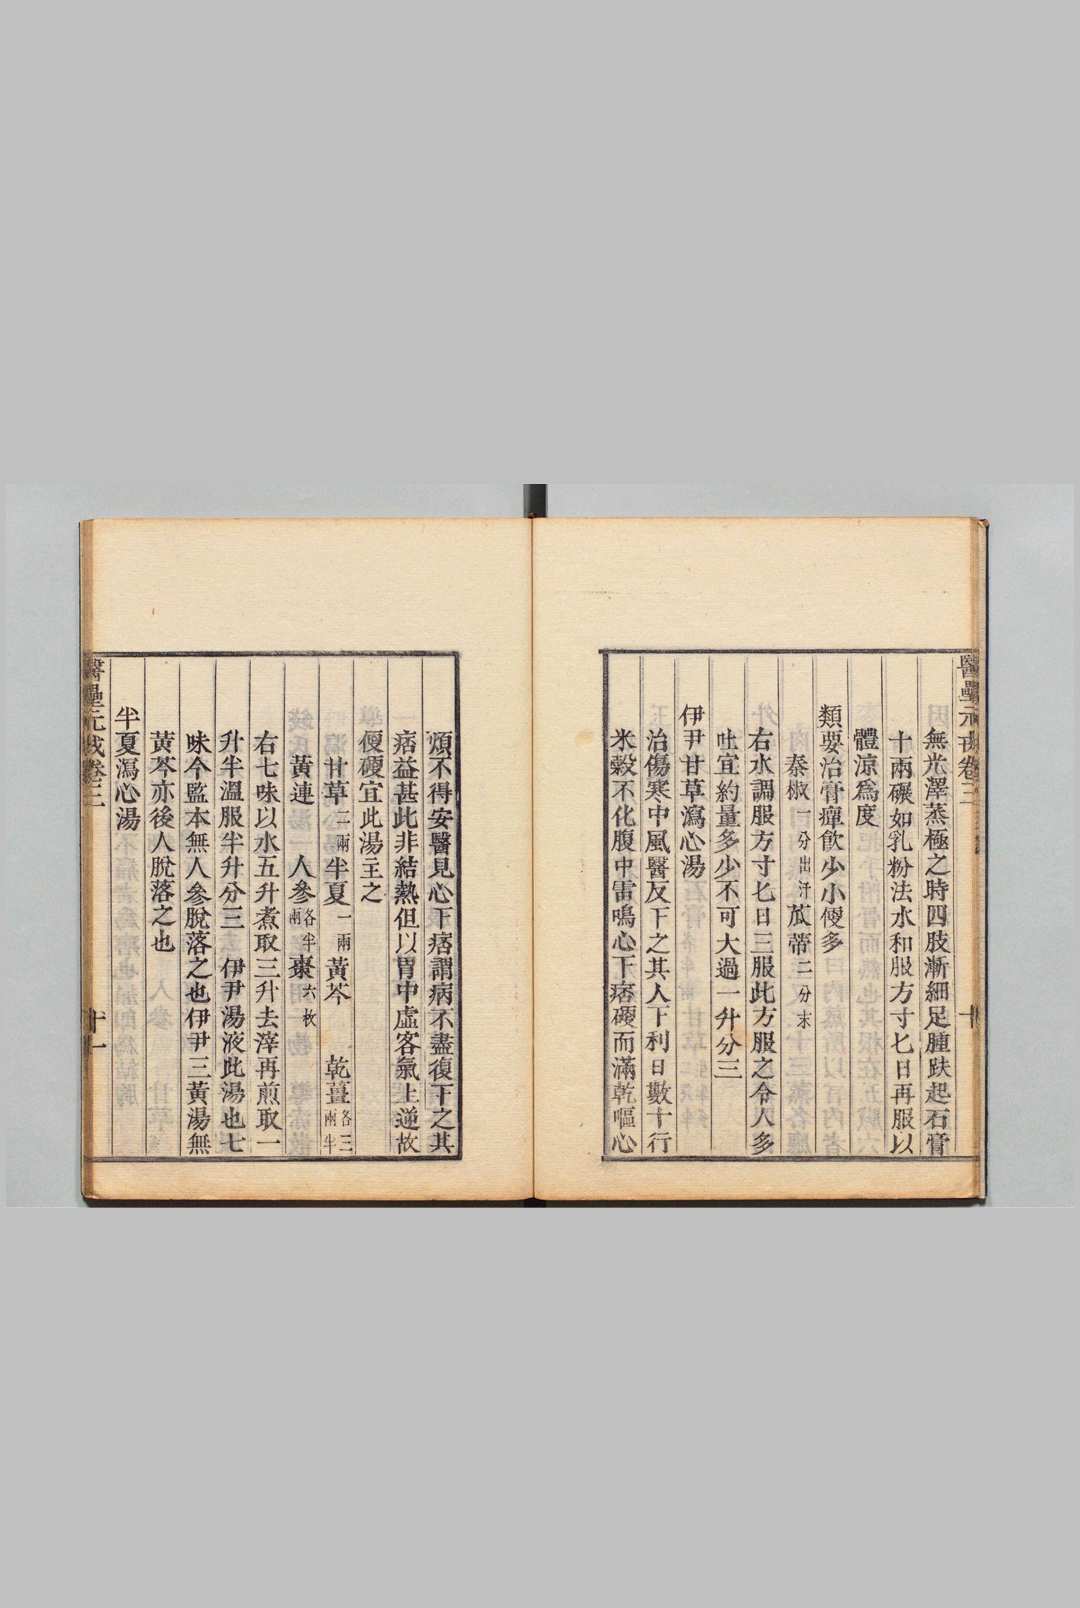 無光澤蒸極之時四肢漸細足腫趺起石膏
十兩碾如乳粉法水和服方寸匕日再服以
體涼爲度
類要治膏癉飲少小便多
秦椒一分出汗苽蒂二分末
右水調服方寸匕日三服此方服之令人多
吐宜約量多少不可大過一升分三
伊尹甘草瀉心湯
治傷寒中風醫反下之其人下利日數十行
米穀不化腹中雷鳴心下痞硬而滿乾嘔心
煩不得安醫見心下痞謂病不盡復下之其
痞益甚此非結熱但以胃中虛客氣上逆故
使硬宜此湯主之
甘草二兩半夏一兩黃芩 乾薑各三兩半
黃連 人參各半兩棗六枚
右七味以水五升煮取三升去滓再煎取一
升半溫服半升分三 伊尹湯液此湯也七
味今監本無人參脫落之也伊尹三黃湯無
黃芩亦後人脫落之也
半夏瀉心湯
醫壘元戎卷三
十一